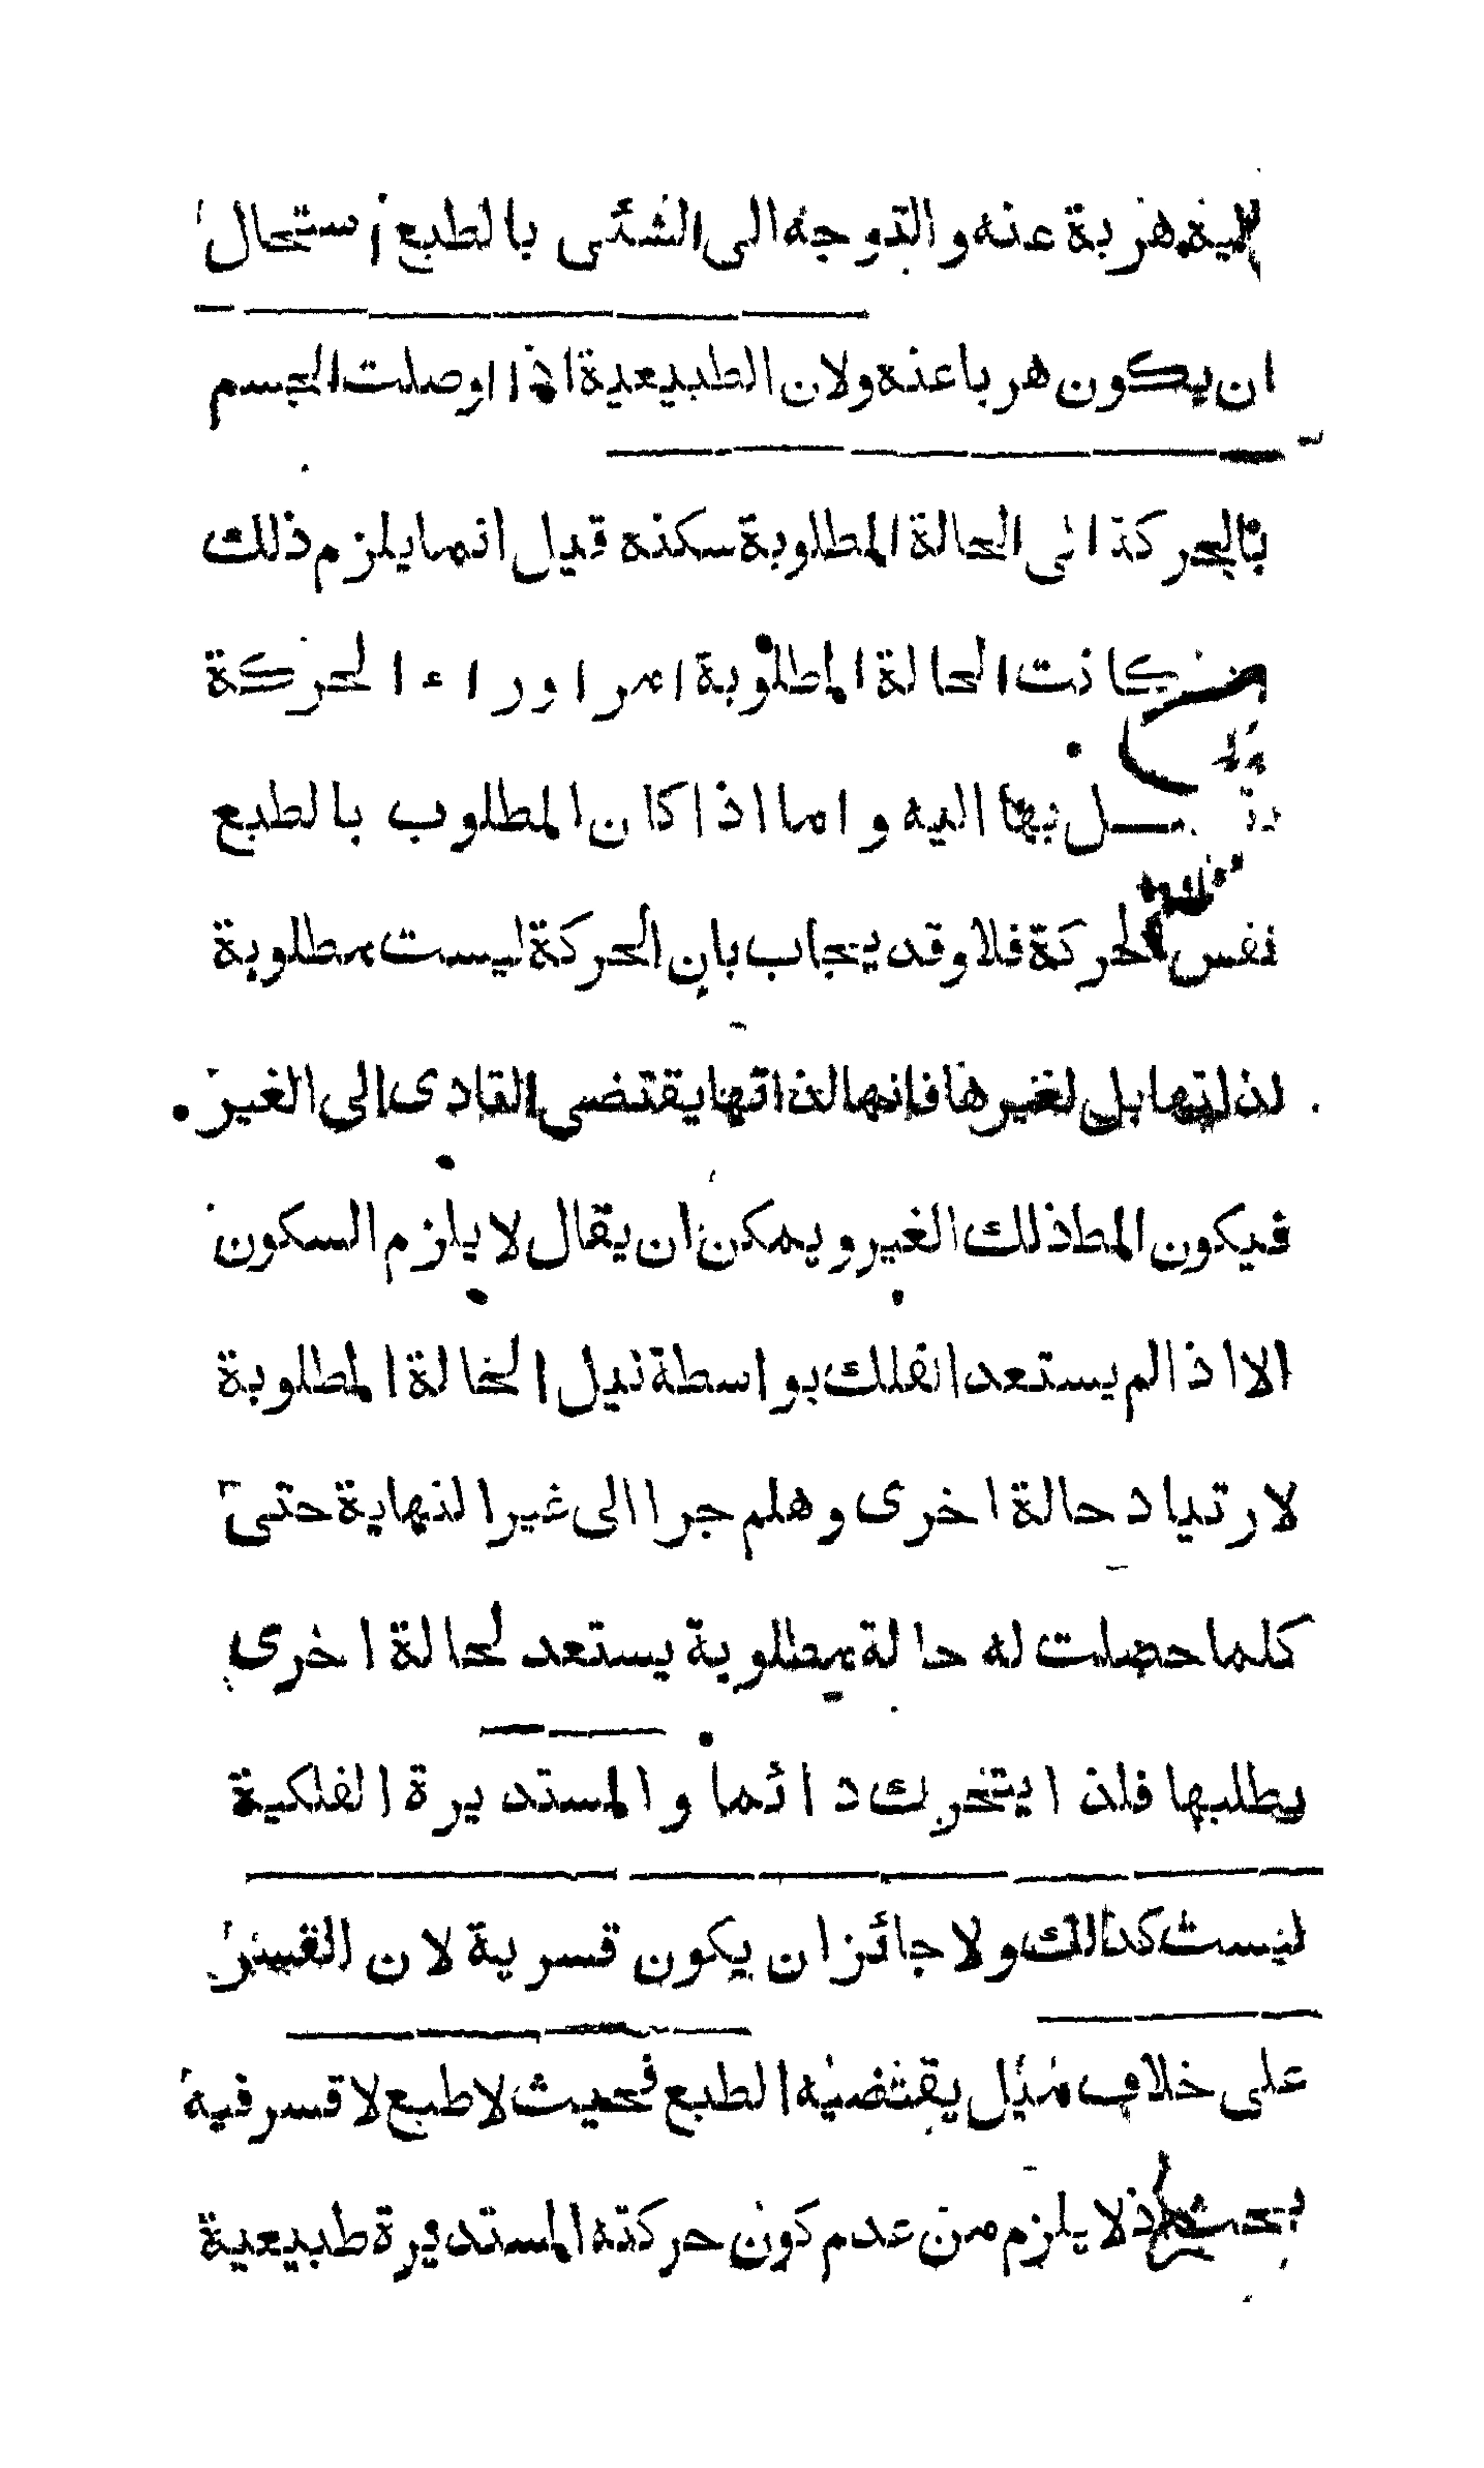 هربة عنه والتوجه الى الشئى بالطبع استحال
ان يكون هربا عنه ولان الطبيعية اذا اوصلت الجسم
بالحركة الى الحالة المطلوبة سكنه قيل انما يلزم ذلك
كانت الحالة المطلوبة امرا وراء الحركة
بها اليه واما اذا كان المطلوب بالطبع
نفس الحركة فلا وقد يجاب بان الحركة ليست مطلوبة
لذاتها بل لغيرها فانها لذاتها يقتضى التادى الى الغير
فيكون المط ذلك الغير ويمكن ان يقال لا يلزم السكون
الا اذا لم يستعد الفلك بواسطة نيل الحالة المطلوبة
لارتياد حالة اخرى وهلم جرا الى غير النهاية حتى
كلما حصلت له حالة مطلوبة يستعد لحالة اخرى
يطلبها فلذا يتحرك دائما والمستديرة الفلكية
ليست كذالك ولا جائز ان يكون قسرية لان القسر
على خلاف ميل يقتضيه الطبع فحيث لا طبع لا قسر فيه
بحث اذ لا يلزم من عدم كون حركته المستديرة طبيعية